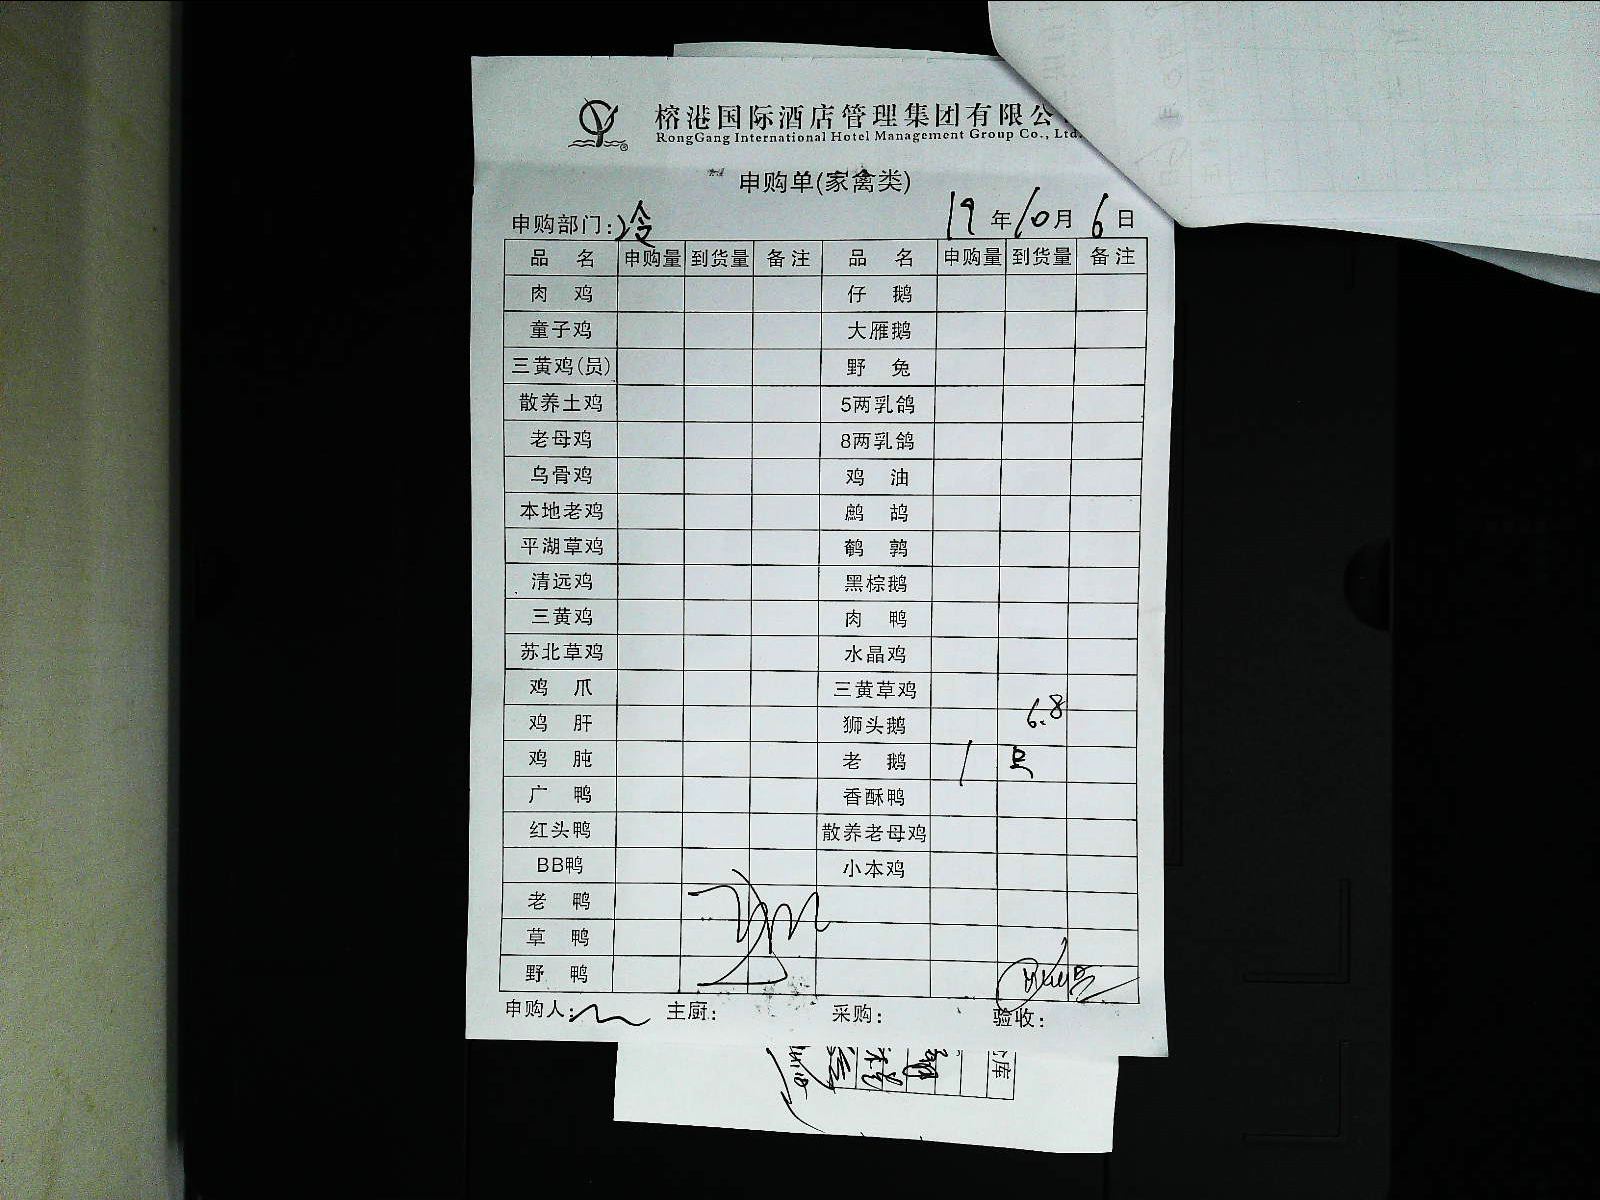 榕港国际酒店管理集团有限公
RongGang International Hotel Management Group Co., Ltd.
申购单(家禽类)
申购部门:冷 19年10月6日
品 名 申购量 到货量 备注 品 名 申购量 到货量 备注
肉 鸡 仔 鹅
童子鸡 大雁鹅
三黄鸡(员) 野 兔
散养土鸡 5两乳鸽
老母鸡 8两乳鸽
乌骨鸡 鸡 油
本地老鸡 鹧 鸪
平湖草鸡 鹌 鹑
清远鸡 黑棕鹅
三黄鸡 肉 鸭
苏北草鸡 水晶鸡
鸡 爪 三黄草鸡
鸡 肝 狮头鹅 6.8
鸡 肫 老 鹅 1 只
广 鸭 香酥鸭
红头鸭 散养老母鸡
BB鸭 小本鸡
老 鸭
草 鸭
野 鸭
申购人: 主厨: 采购: 验收:
库